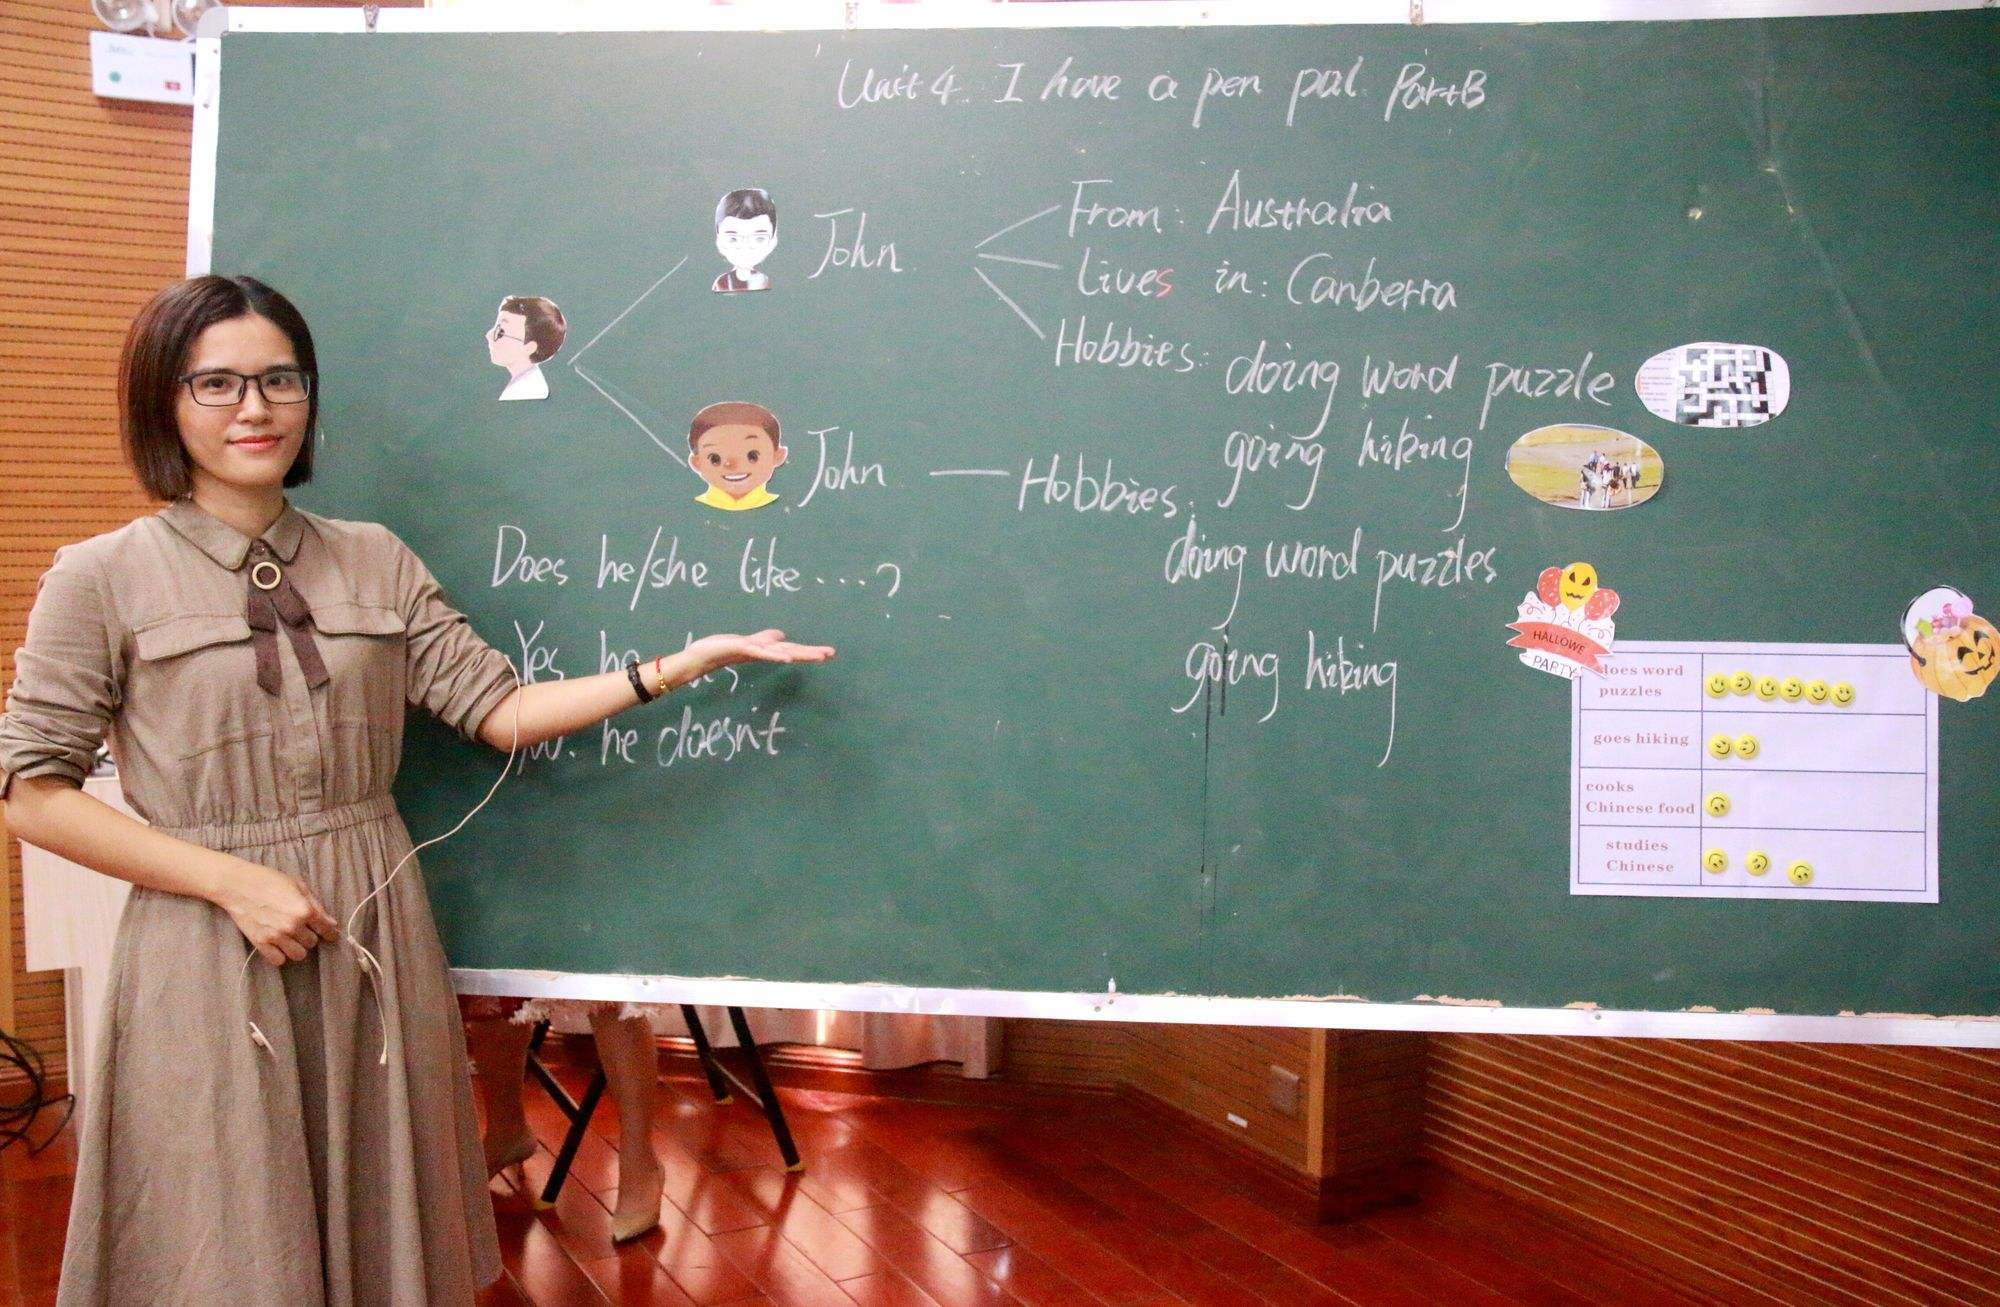 Unit 4 I have a pen pal PartB
John
From: Australia
Lives in: Canberra
Hobbies: doing word puzzle
going hiking
John
Hobbies:
doing word puzzles
going hiking
Does he/she like ...?
Yes he
he doesn't
HALLOWE
PARTY
does word
puzzles
goes hiking
cooks
Chinese food
studies
Chinese